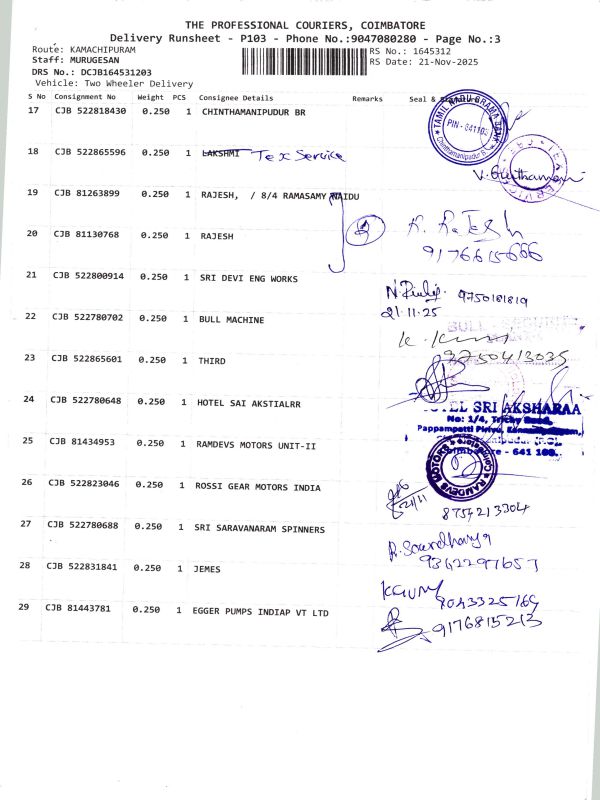 THE PROFESSIONAL COURIERS, COIMBATORE
Delivery Runsheet - P103 - Phone No.:9047080280 - Page No.:3
Route: KAMACHIPURAM RS No.: 1645312
Staff: MURUGESAN RS Date: 21-Nov-2025
DRS No.: DCJB164531203
Vehicle: Two Wheeler Delivery
S No Consignment No Weight PCS Consignee Details Remarks Seal &
17 CJB 522818430 0.250 1 CHINTHAMANIPUDUR BR
TAMIL NADU GRAMA BANK
PIN - 641103
Chinthamanipudur B
18 CJB 522865596 0.250 1 LAKSHMI Tex Service
19 CJB 81263899 0.250 1 RAJESH, / 8/4 RAMASAMY NAIDU
20 CJB 81130768 0.250 1 RAJESH
R. Rajesh
9176615666
21 CJB 522800914 0.250 1 SRI DEVI ENG WORKS
9750181819
21.11.25
22 CJB 522780702 0.250 1 BULL MACHINE
BULL
9750413035
23 CJB 522865601 0.250 1 THIRD
24 CJB 522780648 0.250 1 HOTEL SAI AKSTIALRR
HOTEL SRI AKSHARAA
No: 1/4, Trichy Road,
Pappampatti Pirivu,
Coimbatore - 641 103.
25 CJB 81434953 0.250 1 RAMDEVS MOTORS UNIT-II
RAMDEVS MOTORS
Coimbatore
26 CJB 522823046 0.250 1 ROSSI GEAR MOTORS INDIA
21/11
8754213304
27 CJB 522780688 0.250 1 SRI SARAVANARAM SPINNERS
R. Sowdhanya
9362297657
28 CJB 522831841 0.250 1 JEMES
9043325169
29 CJB 81443781 0.250 1 EGGER PUMPS INDIAP VT LTD
9176815213